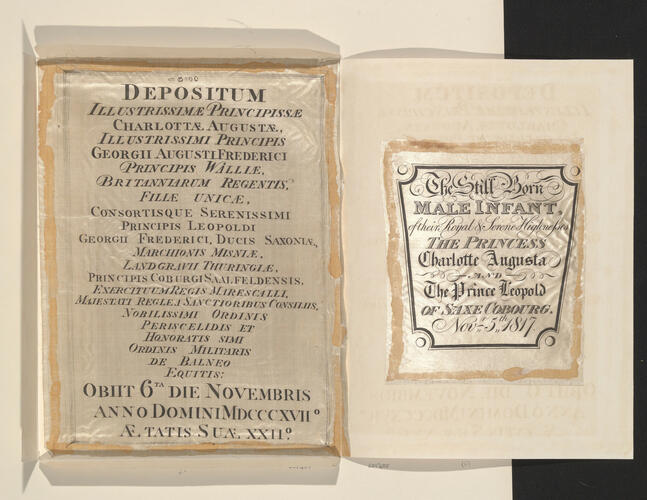 DEPOSITUM
ILLUSTRISSIMÆ PRINCIPISSÆ
CHARLOTTÆ AUGUSTÆ,
ILLUSTRISSIMI PRINCIPIS
GEORGII AUGUSTI FREDERICI
PRINCIPIS WALLIÆ,
BRITANNIARUM REGENTIS,
FILIÆ UNICÆ,
CONSORTISQUE SERENISSIMI
PRINCIPIS LEOPOLDI
GEORGII FREDERICI, DUCIS SAXONIÆ,
MARCHIONIS MISNIÆ,
LANDGRAVII THURINGIÆ,
PRINCIPIS COBURGI SAALFELDENSIS,
EXERCITUUM REGIS MARESCALLI,
MAJESTATI REGLÆ A SANCTIORIBUS CONSILIIS,
NOBILISSIMI ORDINIS
PERISCELIDIS ET
HONORATIS SIMI
ORDINIS MILITARIS
DE BALNEO
EQUITIS:
OBIIT 6TA DIE NOVEMBRIS
ANNO DOMINI MDCCCXVIIo
Æ.TATIS SUÆ. XXIIo.
The Still Born
MALE INFANT,
of their Royal & Serene Highnesses
THE PRINCESS
Charlotte Augusta
AND
The Prince Leopold
OF SAXE COBOURG.
Novr. 5th 1817